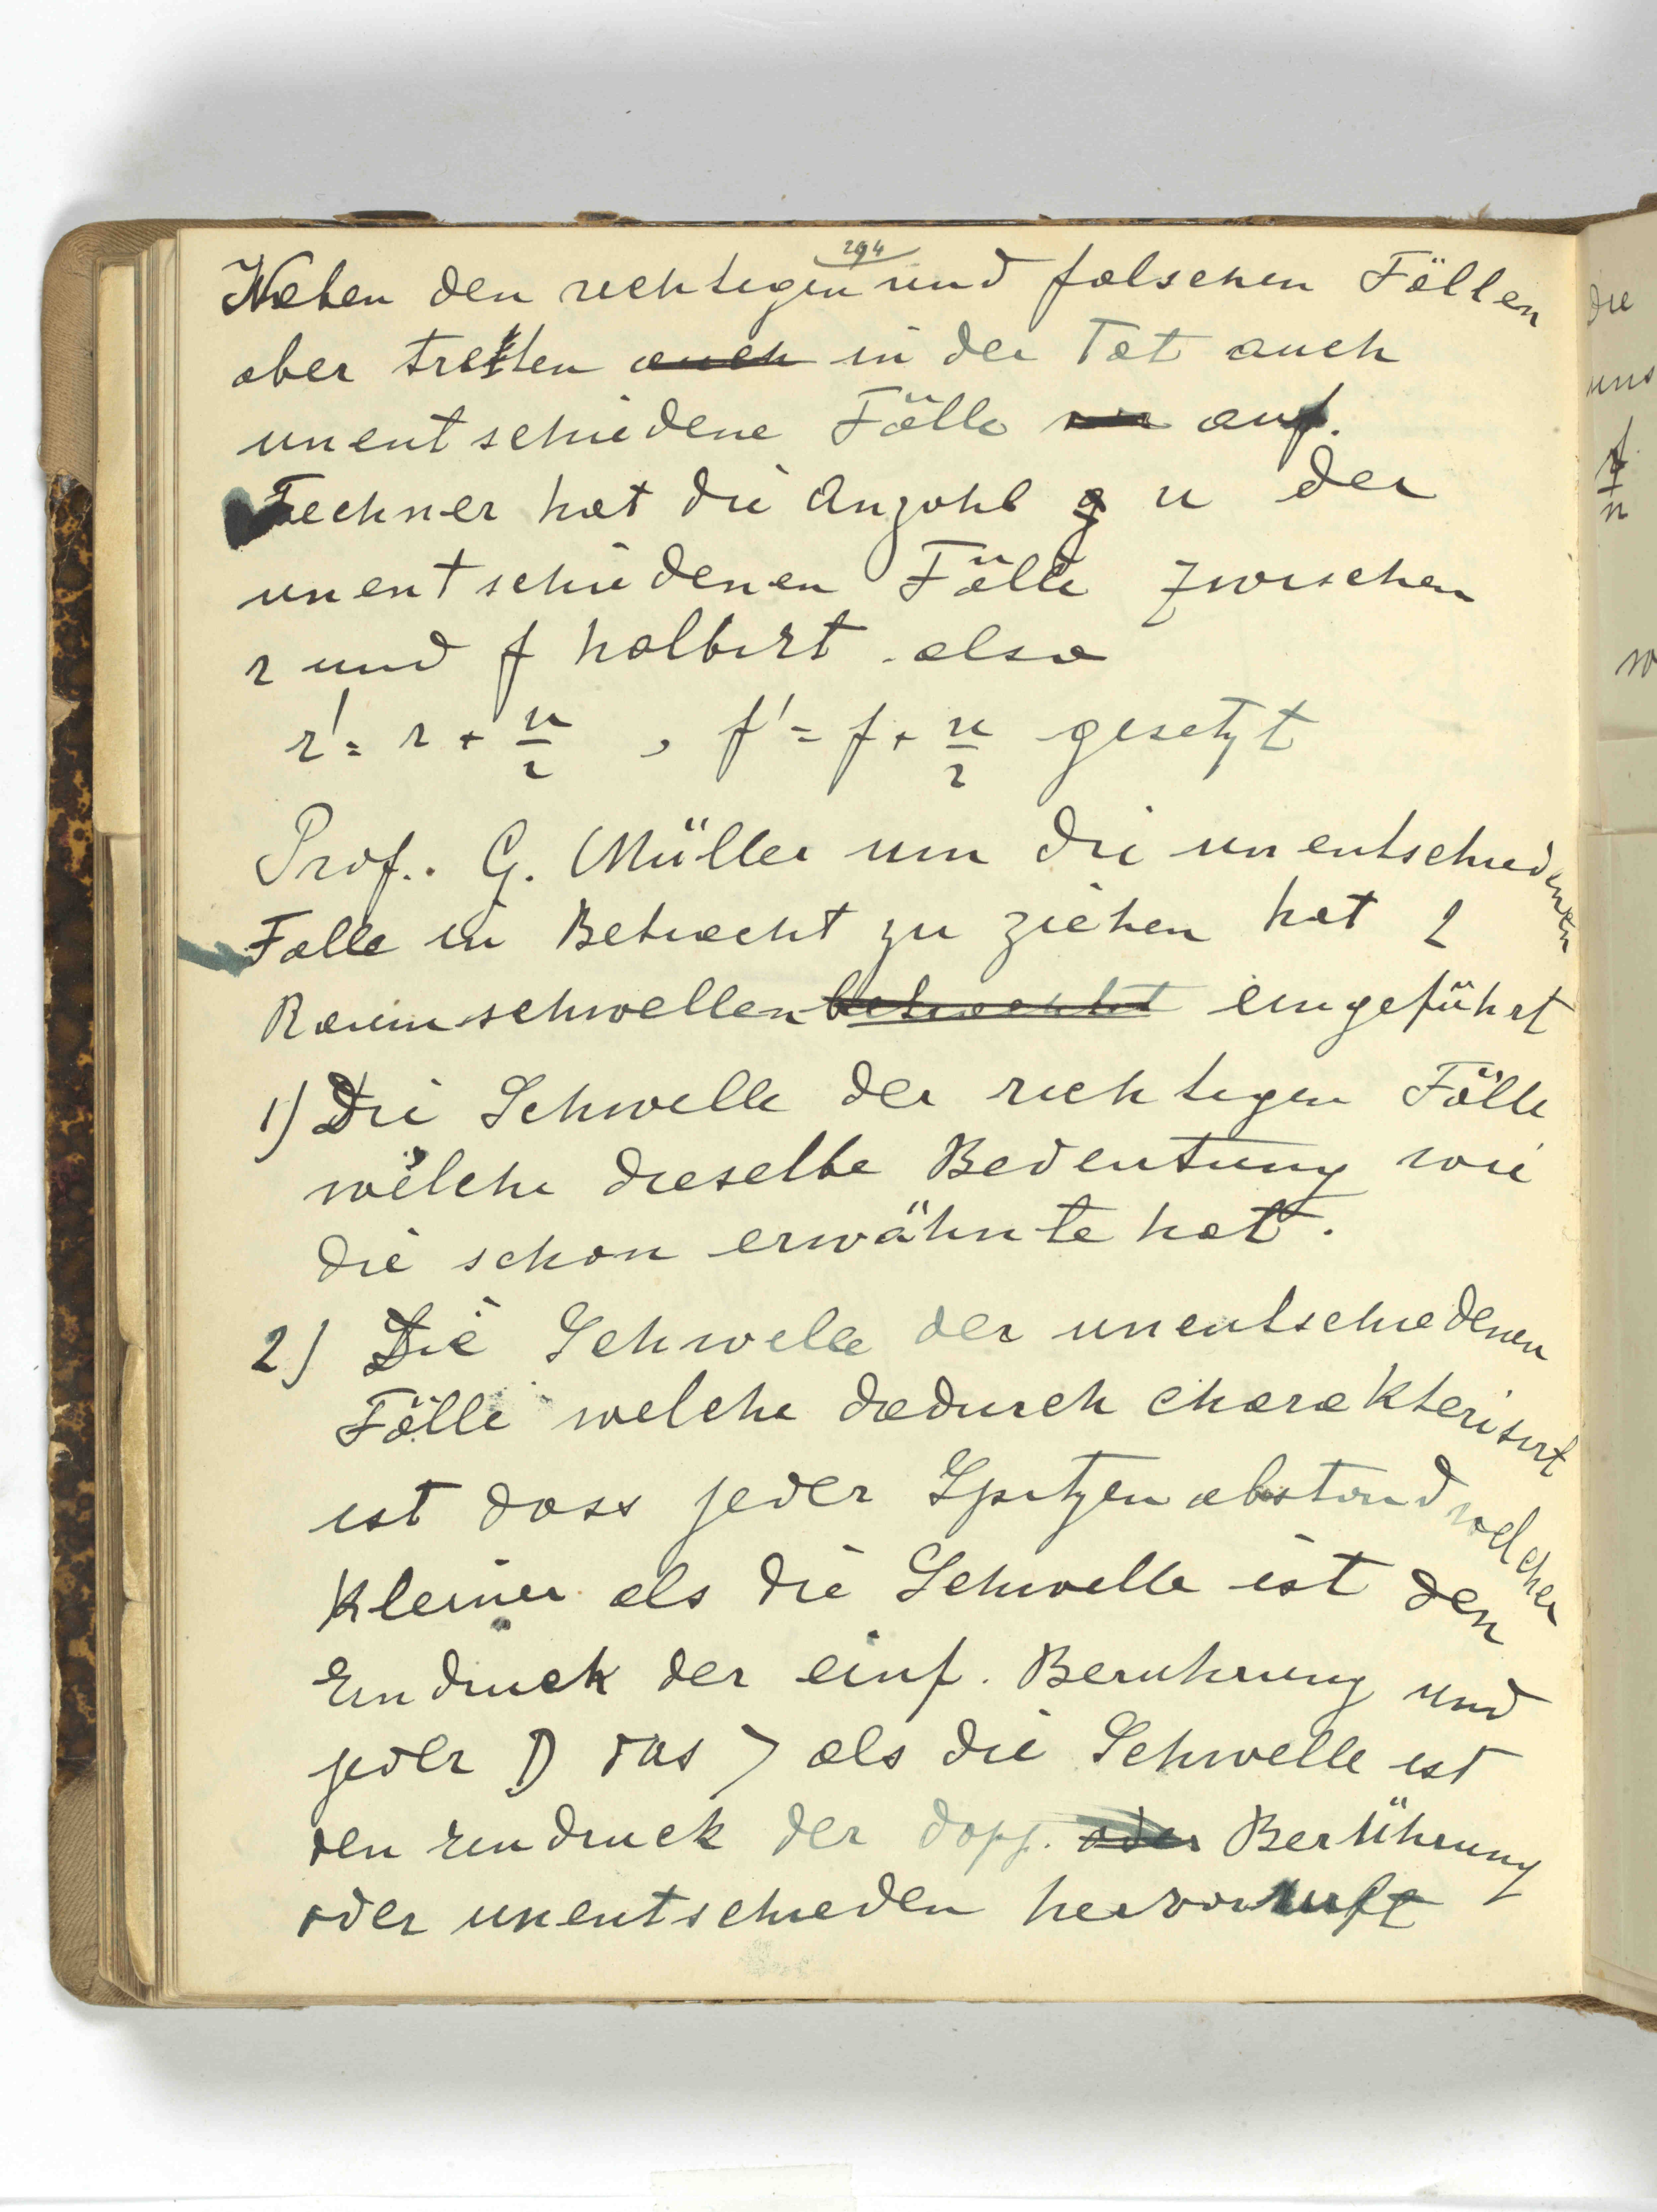 294
Neben den richtigen und falschen Fällen
aber tretten auch in der Tat auch
unentschiedene Fälle auf.
Fechner hat die Anzahl u der
unentschiedenen Fälle zwischen
r und f halbirt also
r' = r + u/2 , f' = f + u/2 gesetzt
Prof. G. Müller um die unentschiedenen
Falle in Betracht zu ziehen hat 2
Raumschwellen betrachtet eingeführt
1) Die Schwelle der richtigen Fälle
welche dieselbe Bedeutung wie
die schon erwähnte hat.
2) Die Schwelle der unentschiedenen
Fälle welche dadurch charakterisirt
ist dass jeder Spitzenabstand welcher
kleiner als die Schwelle ist den
Eindruck der einf. Beruhrung und
jeder D das > als die Schwelle ist
den Eindruck der dopp. oder Berührung
oder unentschieden hervorruft
die
uns
f/n